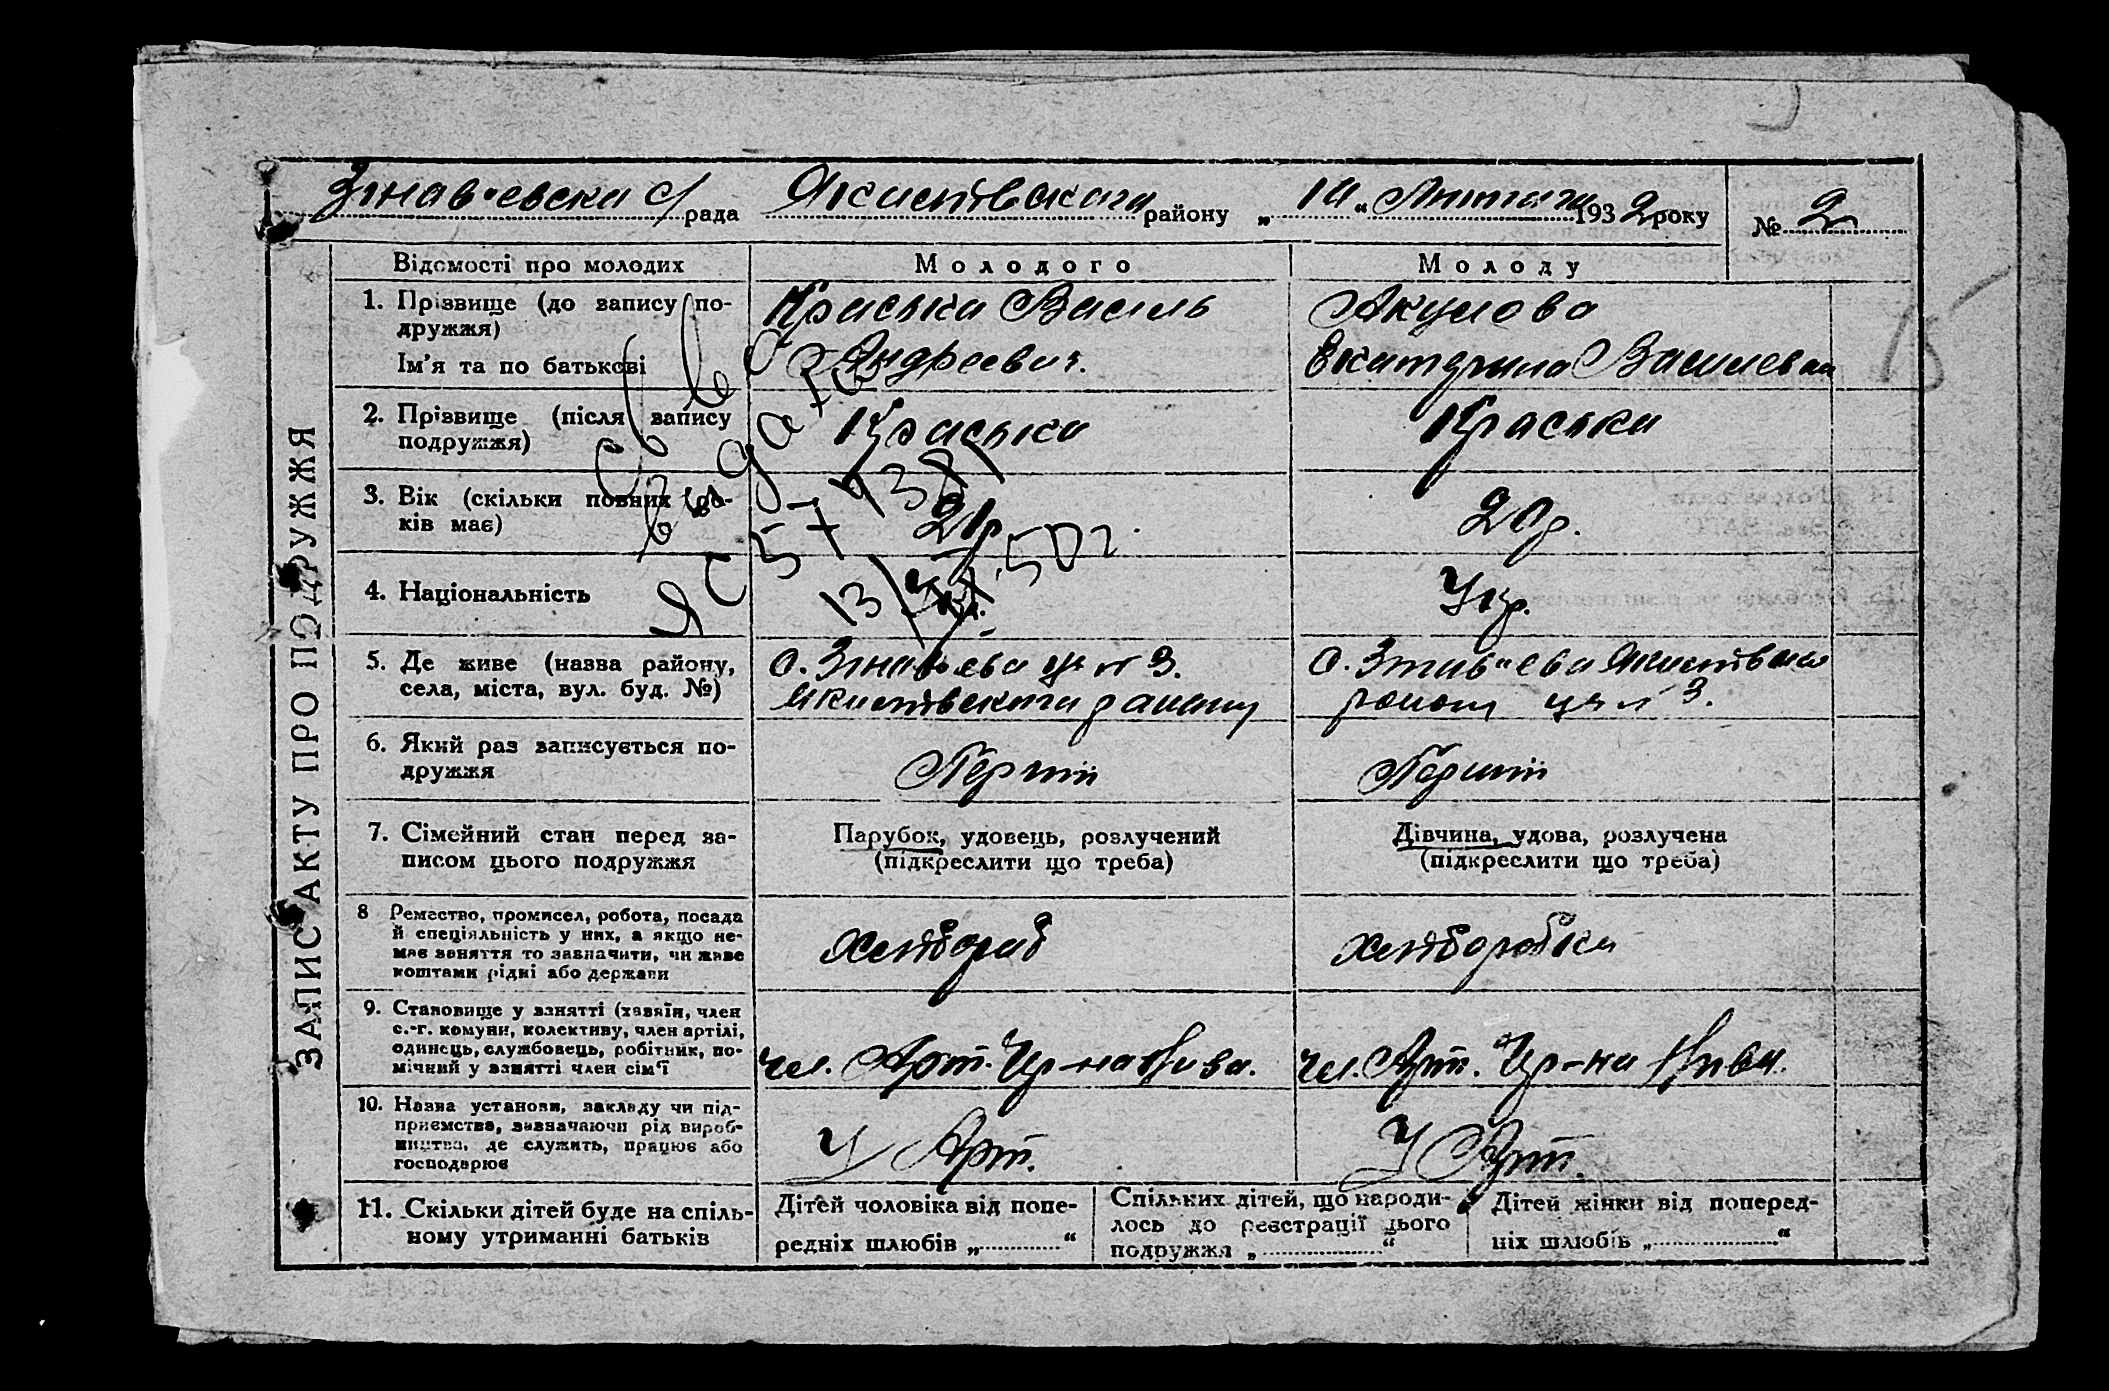 рада району „ “ 1932 року № 2
ЗАПИС АКТУ ПРО ПОДРУЖЖЯ
Відомості про молодих Молодого Молоду
1. Прізвище (до запису по-
дружжя)
Ім'я та по батькові
Краська Василь
Андреевич.
Акулова
Екатерина Василевна
2. Прізвище (після запису
подружжя)
Краська
Краська
3. Вік (скільки повних ро-
ків має)
21р
20р.
4. Національність
Укр.
5. Де живе (назва району,
села, міста, вул. буд. №)
с. № 3.
району
с.
району № 3.
6. Який раз записується по-
дружжя
Перший
Перший
7. Сімейний стан перед за-
писом цього подружжя
Парубок, удовець, розлучений
(підкреслити що треба)
Дівчина, удова, розлучена
(підкреслити що треба)
8 Ремество, промисел, робота, посада
й спеціяльність у них, а якщо не-
має заняття то зазначити, чи живе
коштами рідні або держави
хлібороб
хліборобка
9. Становище у занятті (хазяїн, член
с.-г. комуни, колективу, член артілі,
одинець, службовець, робітник, по-
мічний у занятті член сім'ї
чл. Арт. Чер-на Нива.
чл. Арт. Чер-на Нива.
10. Назва установи, закладу чи під-
приємства, зазначаючи рід вироб-
ництва, де служить, працює або
господарює
У Арт.
У Арт.
11. Скільки дітей буде на спіль-
ному утриманні батьків
Дітей чоловіка від попе-
редніх шлюбів „ “
Спільких дітей, що народи-
лось до реєстрації цього
подружжя „ “
Дітей жінки від поперед-
ніх шлюбів „ “
выдано
15